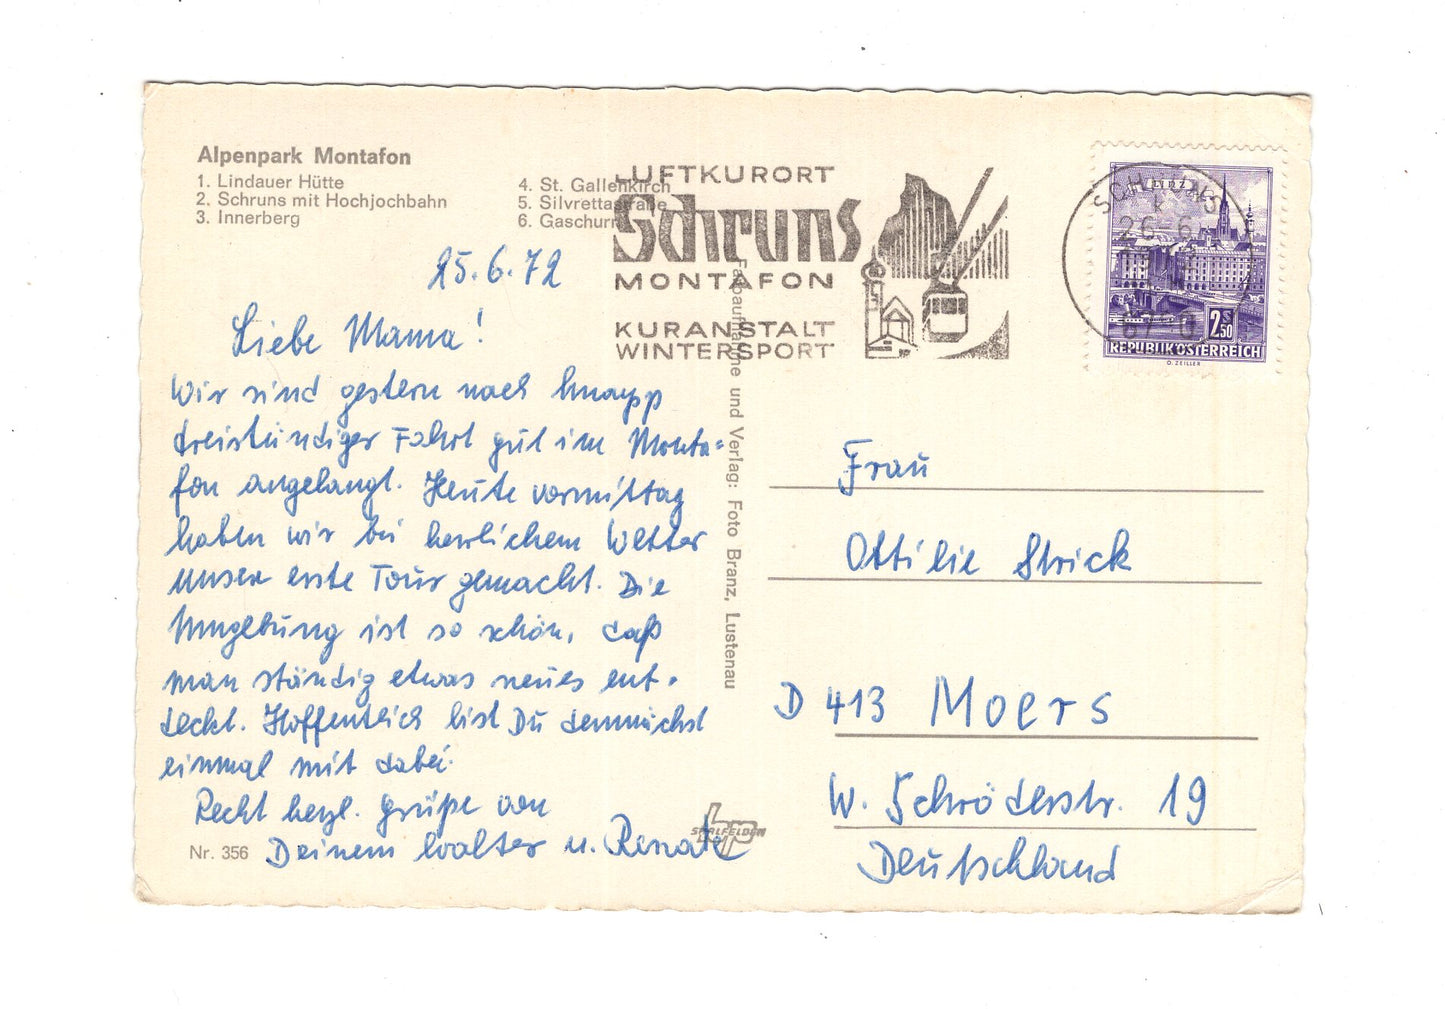 Alpenpark Montafon
1. Lindauer Hütte
2. Schruns mit Hochjochbahn
3. Innerberg
4. St. Gallenkirch
5. Silvrettastraße
6. Gaschurn
LUFTKURORT
Schruns
MONTAFON
KURANSTALT
WINTERSPORT
SCHRUNS
26. 6.
LINZ
2S50
REPUBLIK ÖSTERREICH
O. ZEILLER
25.6.72
Liebe Mama!
Wir sind gestern nach knapp
dreistündiger Fahrt gut im Monta=
fon angelangt. Heute vormittag
haben wir bei herrlichem Wetter
unsere erste Tour gemacht. Die
Umgebung ist so schön, daß
man ständig etwas neues ent-
deckt. Hoffentlich bist Du demnächst
einmal mit dabei.
Recht herzl. Grüße von
Deinem Walter u. Renate
Nr. 356
Farbaufnahme und Verlag: Foto Branz, Lustenau
SAALFELDEN
Frau
Ottilie Strick
D 413 Moers
W. Schröderstr. 19
Deutschland